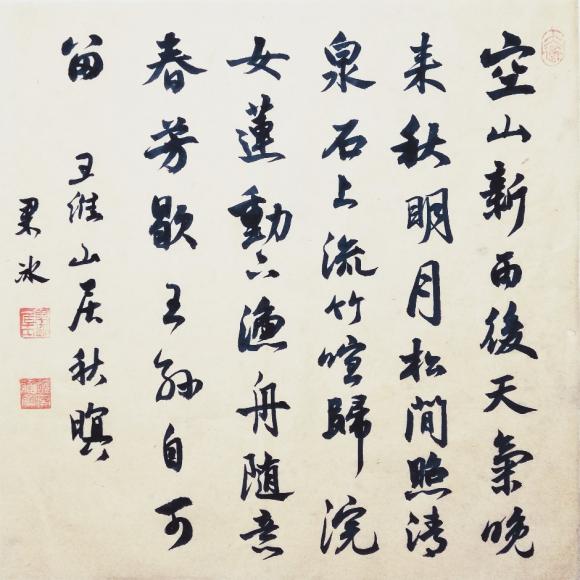 空山新雨後天氣晚
来秋明月松間照清
泉石上流竹喧歸浣
女蓮動下漁舟随意
春芳歇王孫自可
留 王維山居秋暝
梁冰